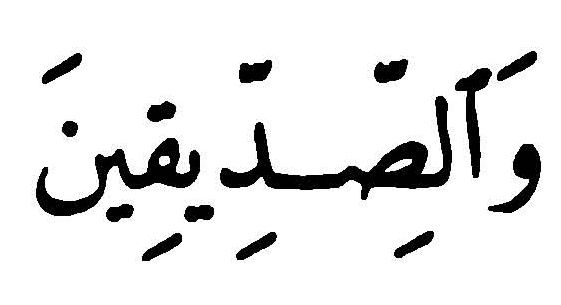 وَٱلصِّدِّيقِينَ